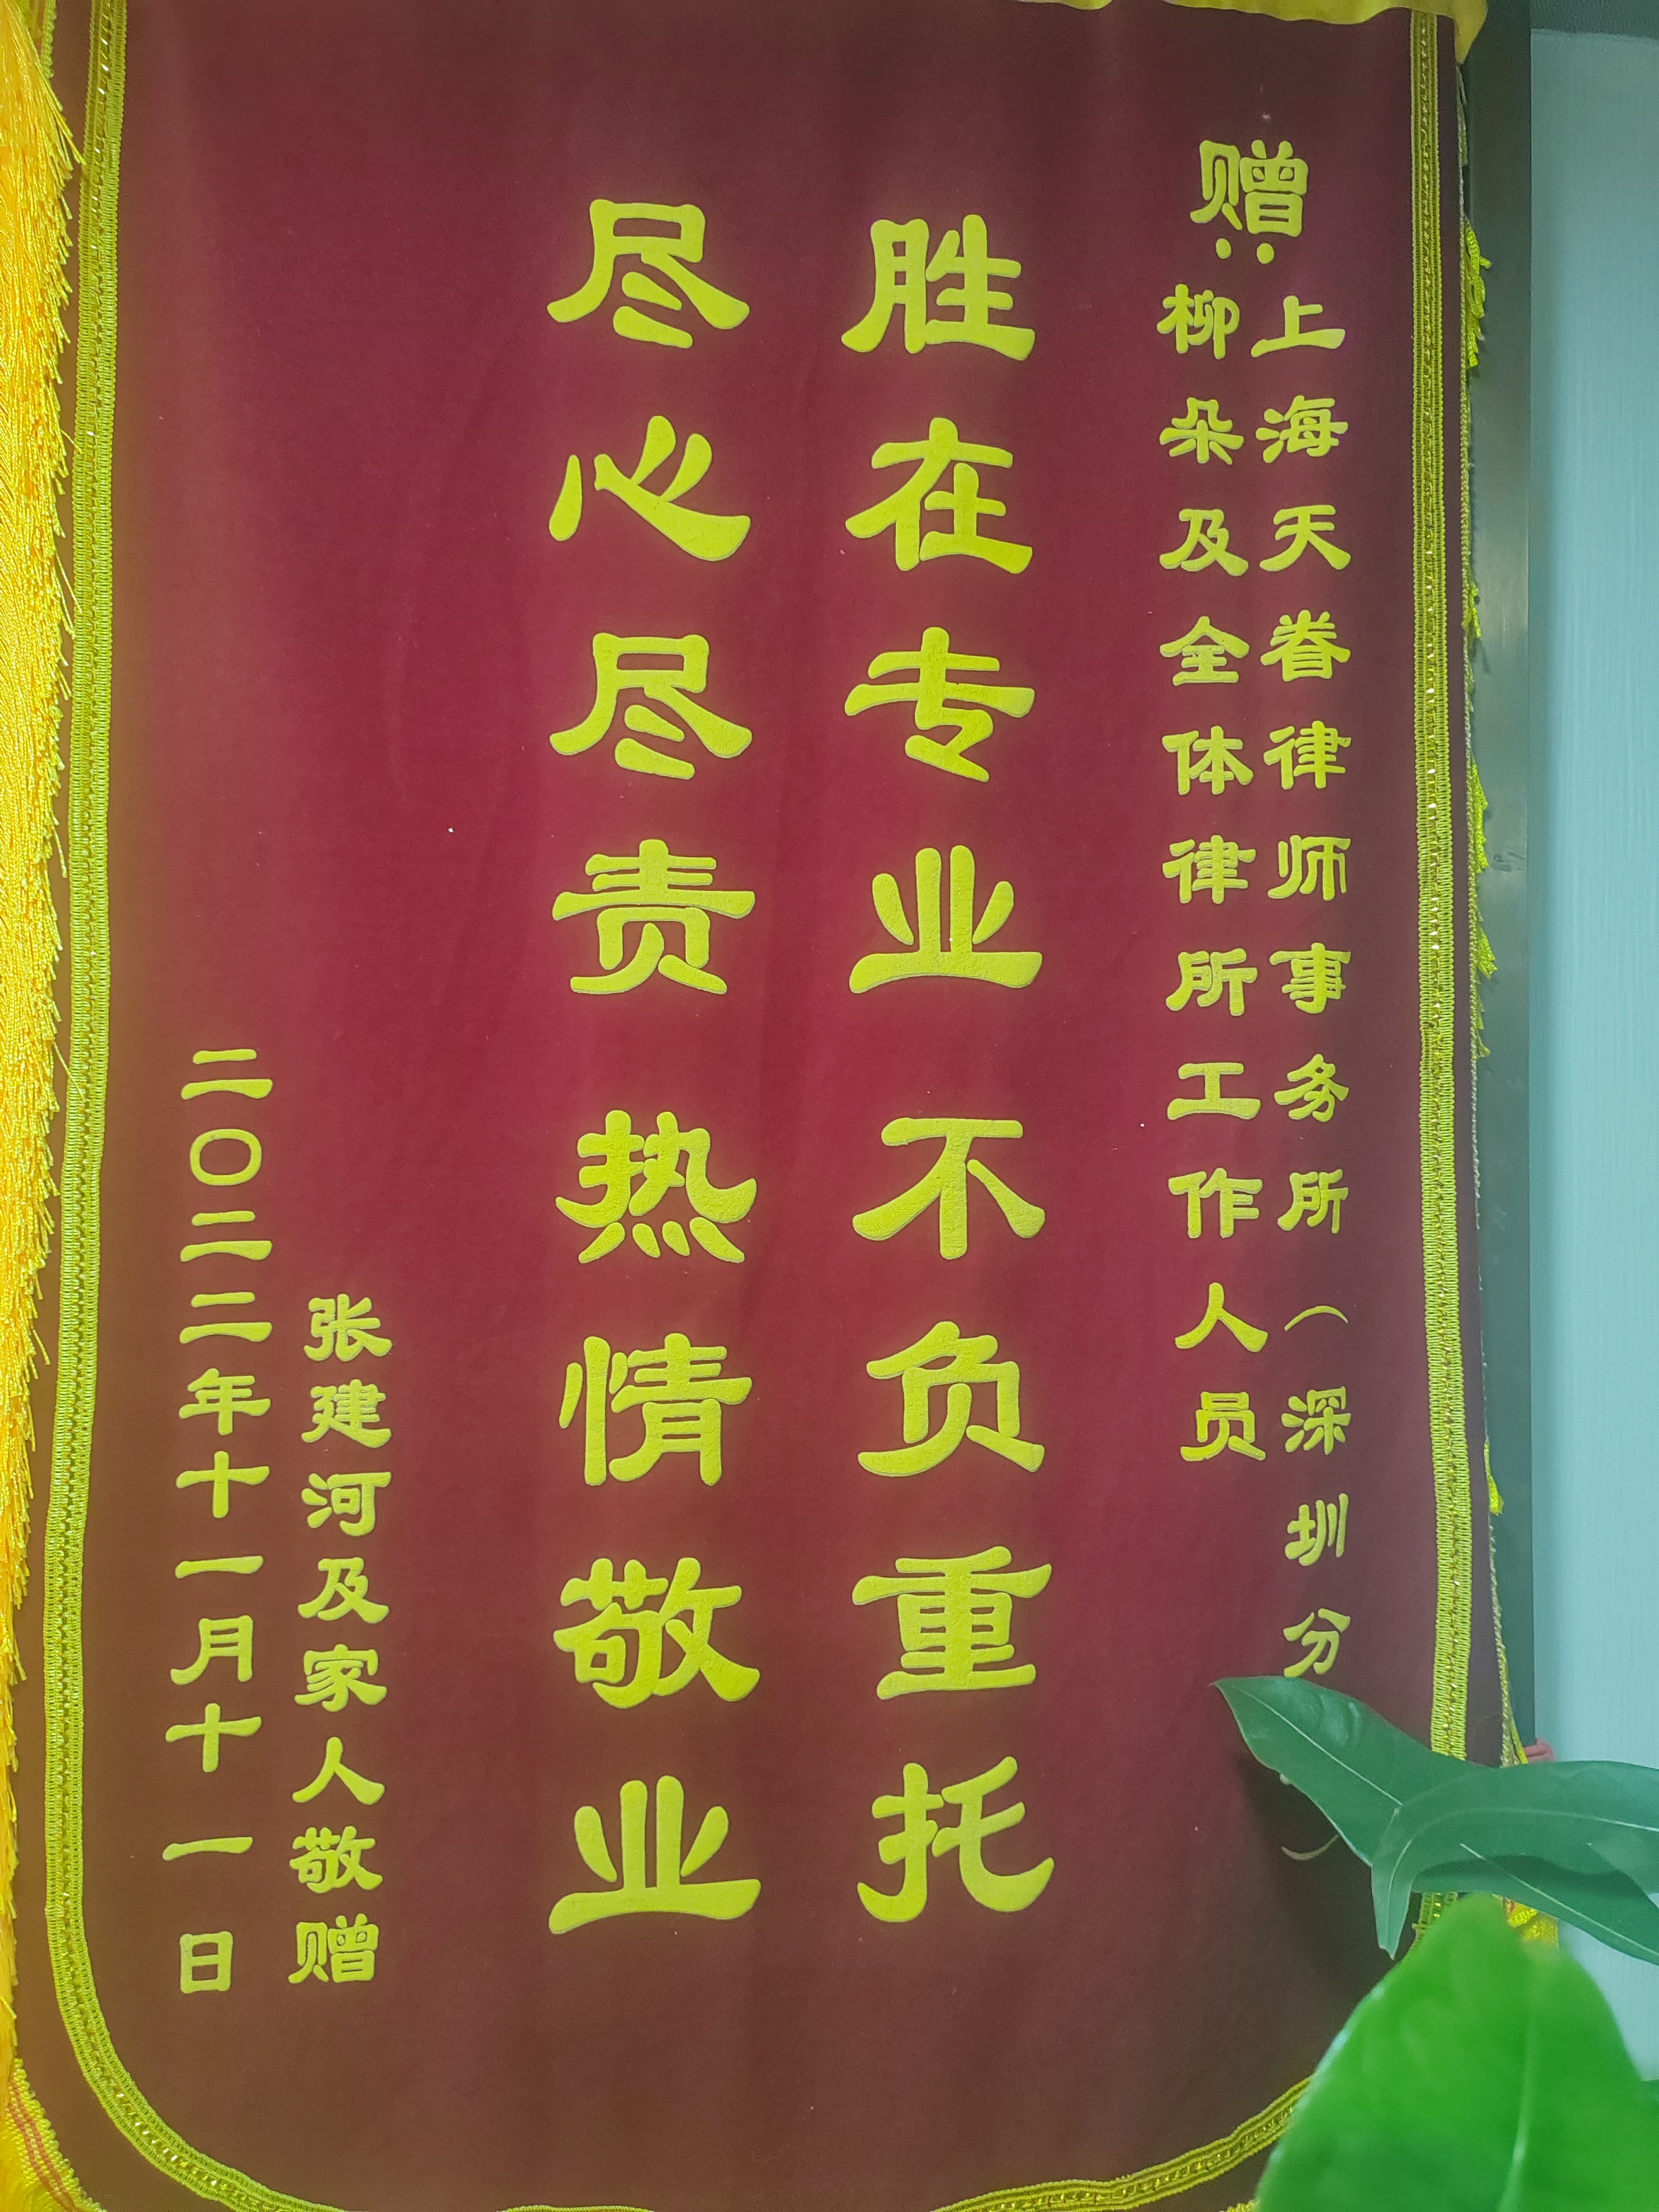 赠:
上海天眷律师事务所（深圳分
柳朵及全体律所工作人员
胜在专业不负重托
尽心尽责热情敬业
张建河及家人敬赠
二〇二二年十一月十一日